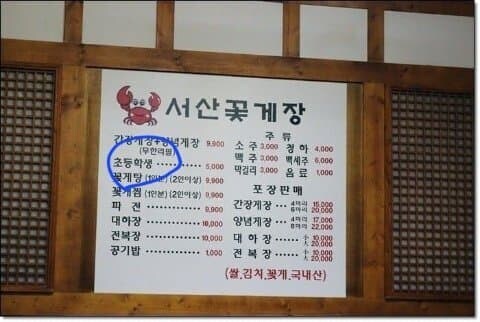 서산꽃게장
간장게장+양념게장 9,900
(무한리필)
초등학생 ········· 5,000
꽃게탕 (1인분) (2인이상) 9,900
꽃게찜 (1인분) (2인이상) 9,900
파 전 ············ 9,900
대하장 ············ 18,000
전복장 ············ 10,000
공기밥 ············ 1,000
주 류
소 주 3,000 청 하 4,000
맥 주 3,000 백세주 6,000
막걸리 3,000 음 료 1,000
포 장 판 매
간장게장 ··· 4마리 15,000
6마리 20,000
양념게장 ··· 4마리 17,000
8마리 22,000
대 하 장 ······ 小 10,000
大 20,000
전 복 장 ······ 小 10,000
大 20,000
(쌀,김치,꽃게,국내산)